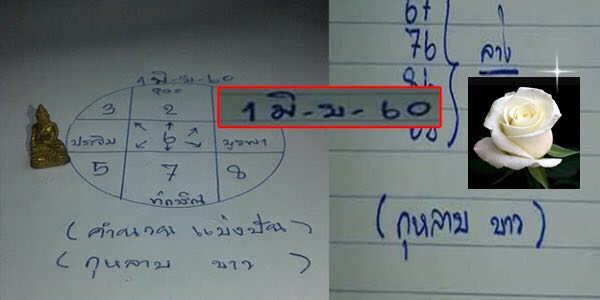 1 มิ-ย-60
อุดร
3 2
ประจิม 6 บูรพา
5 7 8
ทักษิณ
(คำนวน แบ่งปัน)
(กุหลาบ ขาว)
1 มิ-ย-60
67
76
86
ล่าง
(กุหลาบ ขาว)